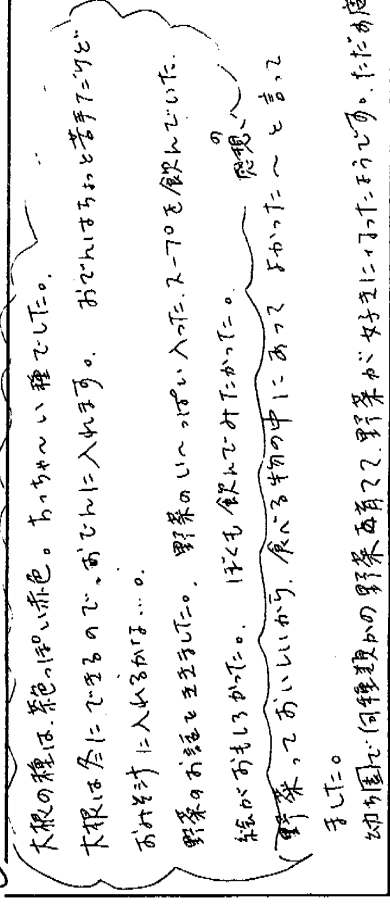 大根の種は、茶色っぽい赤色。ちっちゃ〜い種でした。
大根は冬にできるので、おでんに入れます。おでんはちょっと苦手だけど
おみそ汁に入れるかな…。
野菜のお話を聞きました。野菜のい〜っぱい入ったスープを飲んでいた
絵がおもしろかった。ぼくも飲んでみたかった。
の感想、
野菜っておいしいから、食べる物の中にあって よかった〜と言って
ました。
幼ち園で何種類かの野菜を育てて、野菜が好きになったようです。ただお